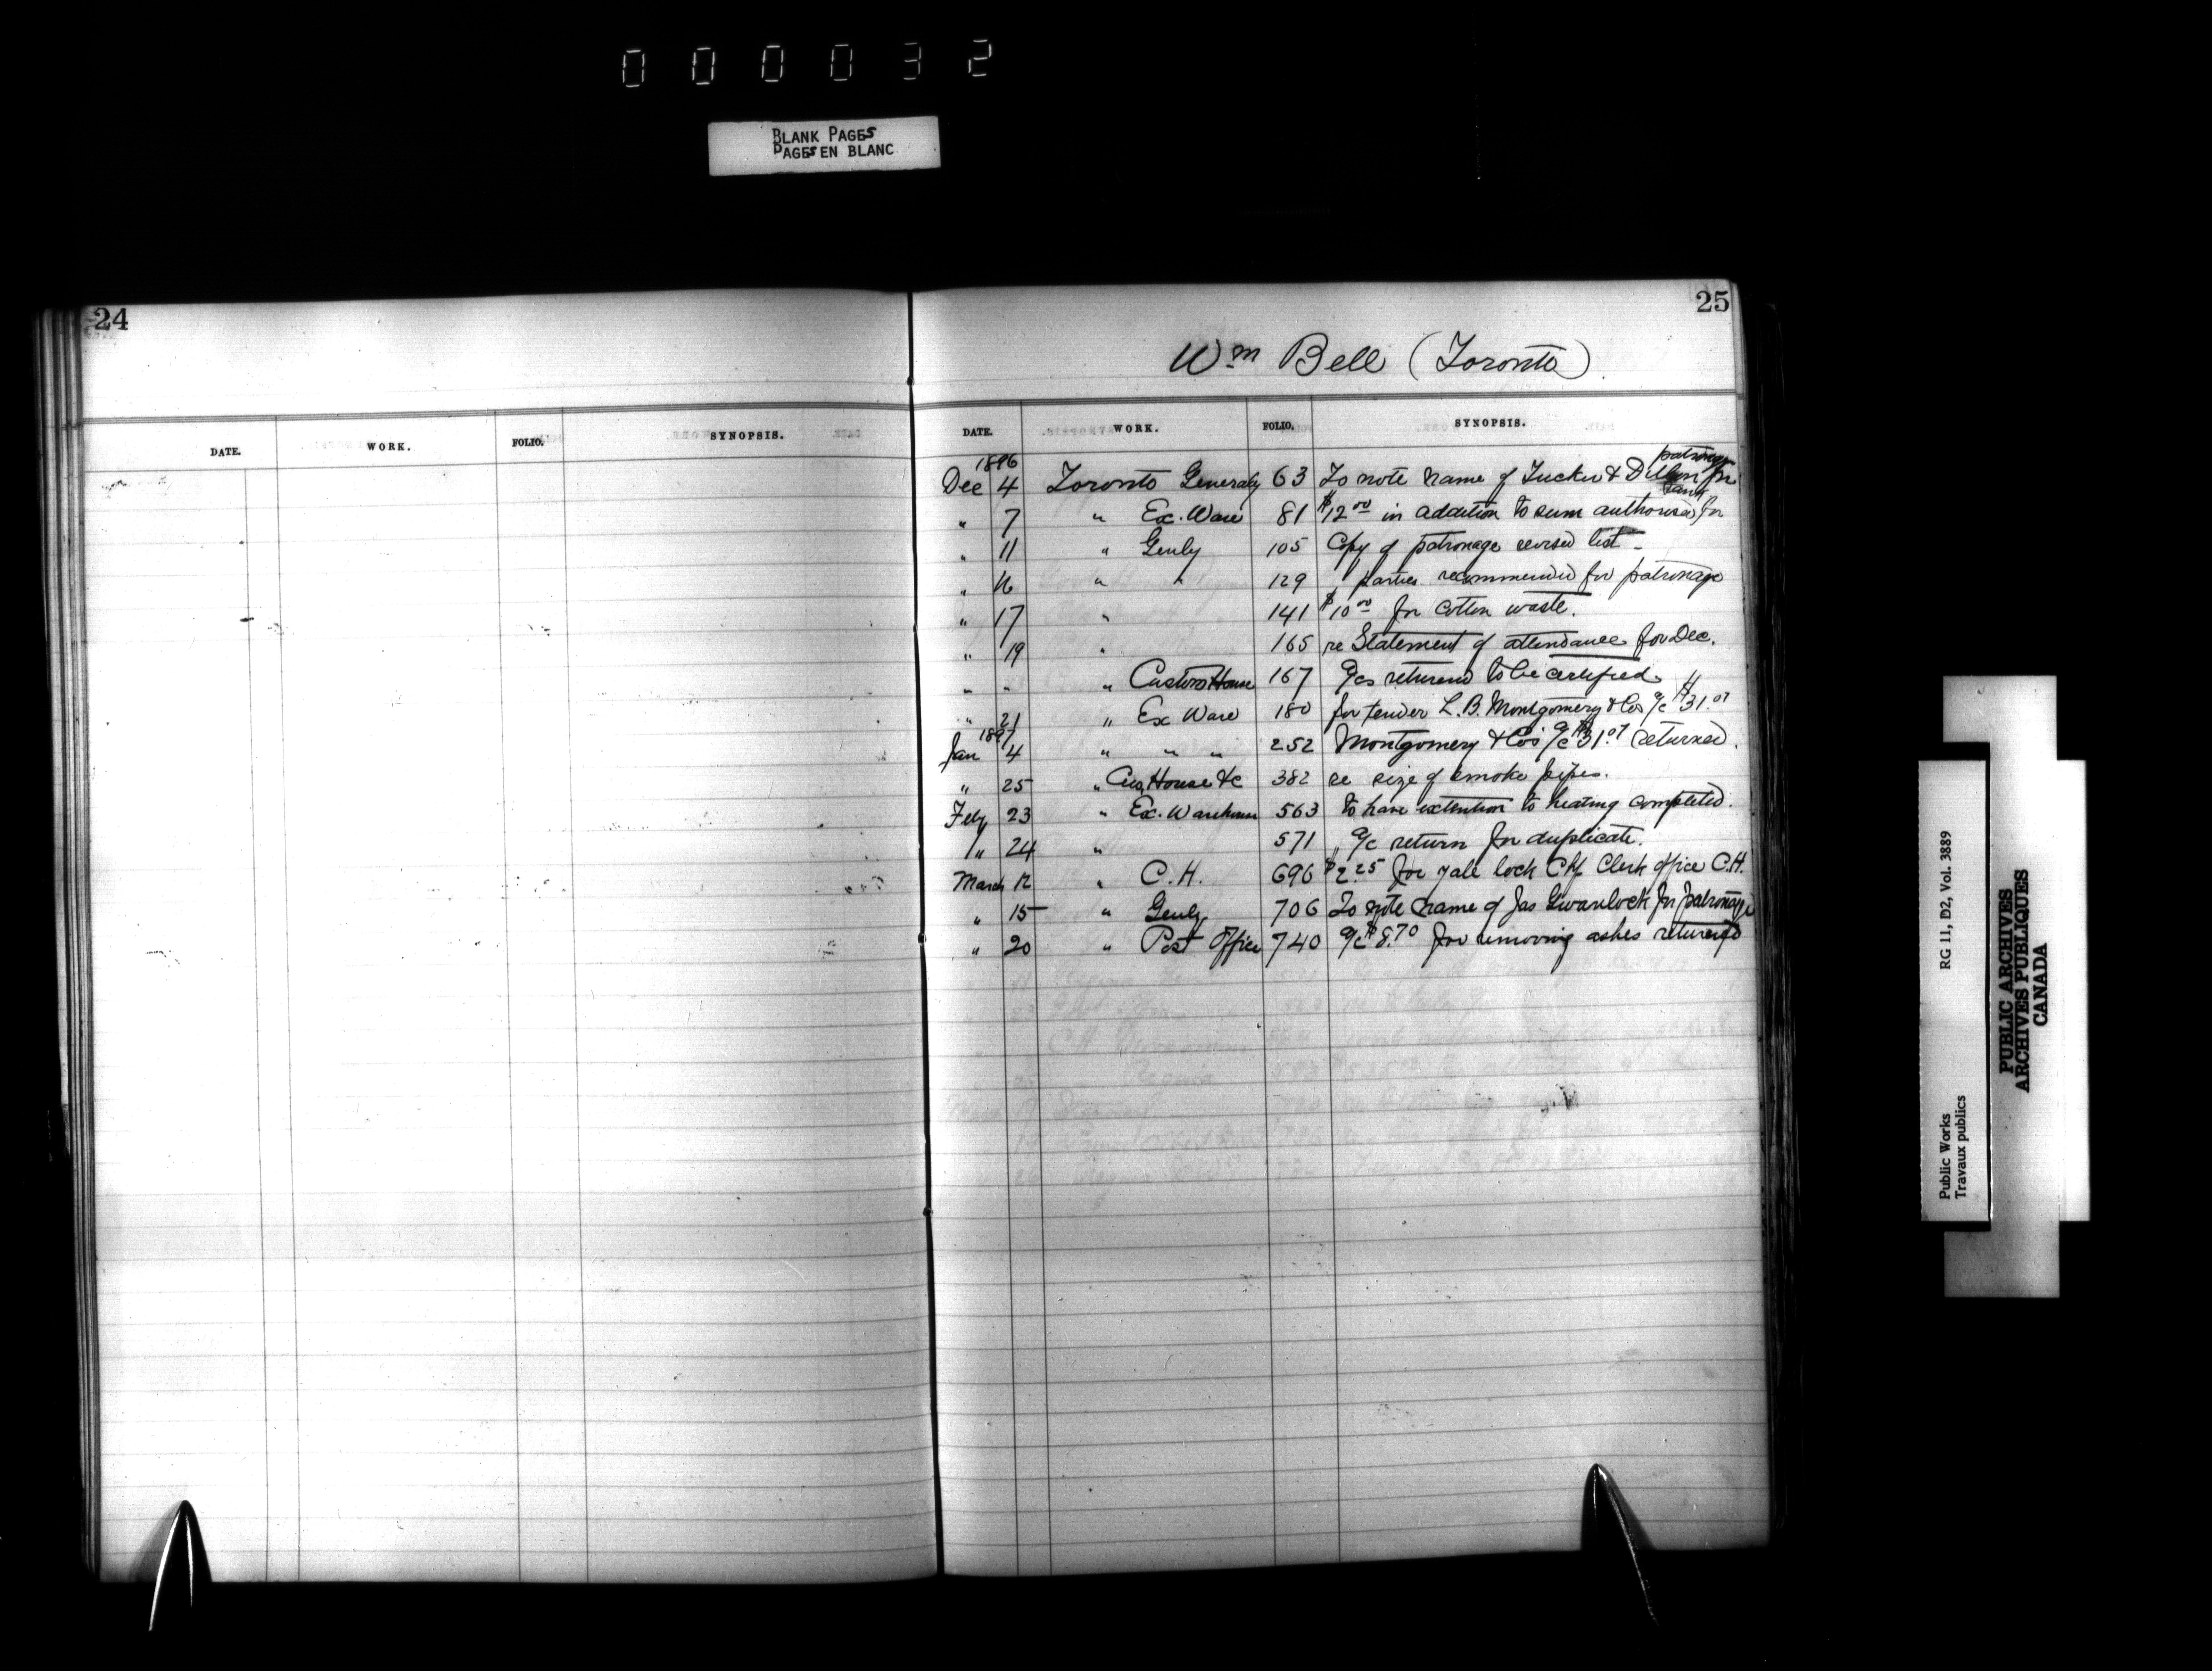 000032
BLANK PAGES
PAGES EN BLANC
24
DATE. WORK. FOLIO. SYNOPSIS.
25
Wm Bell (Toronto)
DATE. WORK. FOLIO. SYNOPSIS.
1896 patronage
Dec 4 Toronto Generaly 63 To note name of Tucker & Dillon for
tank
" 7 " Ex. Ware 81 $12.00 in addition to sum authorised for
" 11 " Genly 105 Copy of patronage revised list -
" 16 " " 129 parties recommended for patronage
" 17 " 141 $10.00 for cotton waste.
" 19 " 165 re Statement of attendance for Dec.
" " " Customs House 167 a/cs returned to be certified.
" 21 " Ex Ware 180 for tender L. B. Montgomery & Cos a/c $31.07
1897
Jan 4 " " " 252 Montgomery & Co's a/c $31.07 returned.
" 25 " Cus House &c 382 re size of smoke pipes.
Feby 23 " Ex. Warehouse 563 to have extention to heating completed.
" 24 " 571 " a/c return for duplicate.
March 12 " C.H. 696 $2.25 for yale lock Chf Clerk office C.H.
" 15 " Genly 706 To note name of Jas Gwanlock for patronage
" 20 " Post Office 740 a/c $8.70 for removing ashes returned
RG 11, D2, Vol. 3889
Public Works
Travaux publics
PUBLIC ARCHIVES
ARCHIVES PUBLIQUES
CANADA